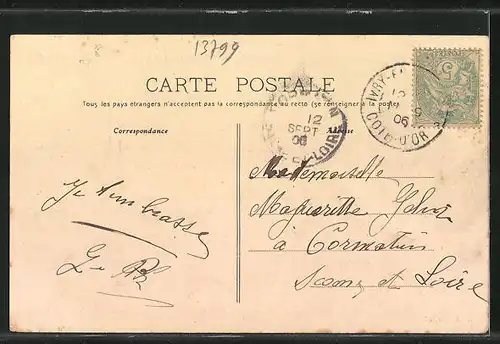 13799
CARTE POSTALE
Tous les pays étrangers n'acceptent pas la correspondance au recto (se renseigner à la poste)
Correspondance
Adresse
12
SEPT
06
ET-LOIRE
IVRY-
06
COTE-D'OR
5
Mademoiselle
Je t'embrasse
à Cormatin
Saone et Loire